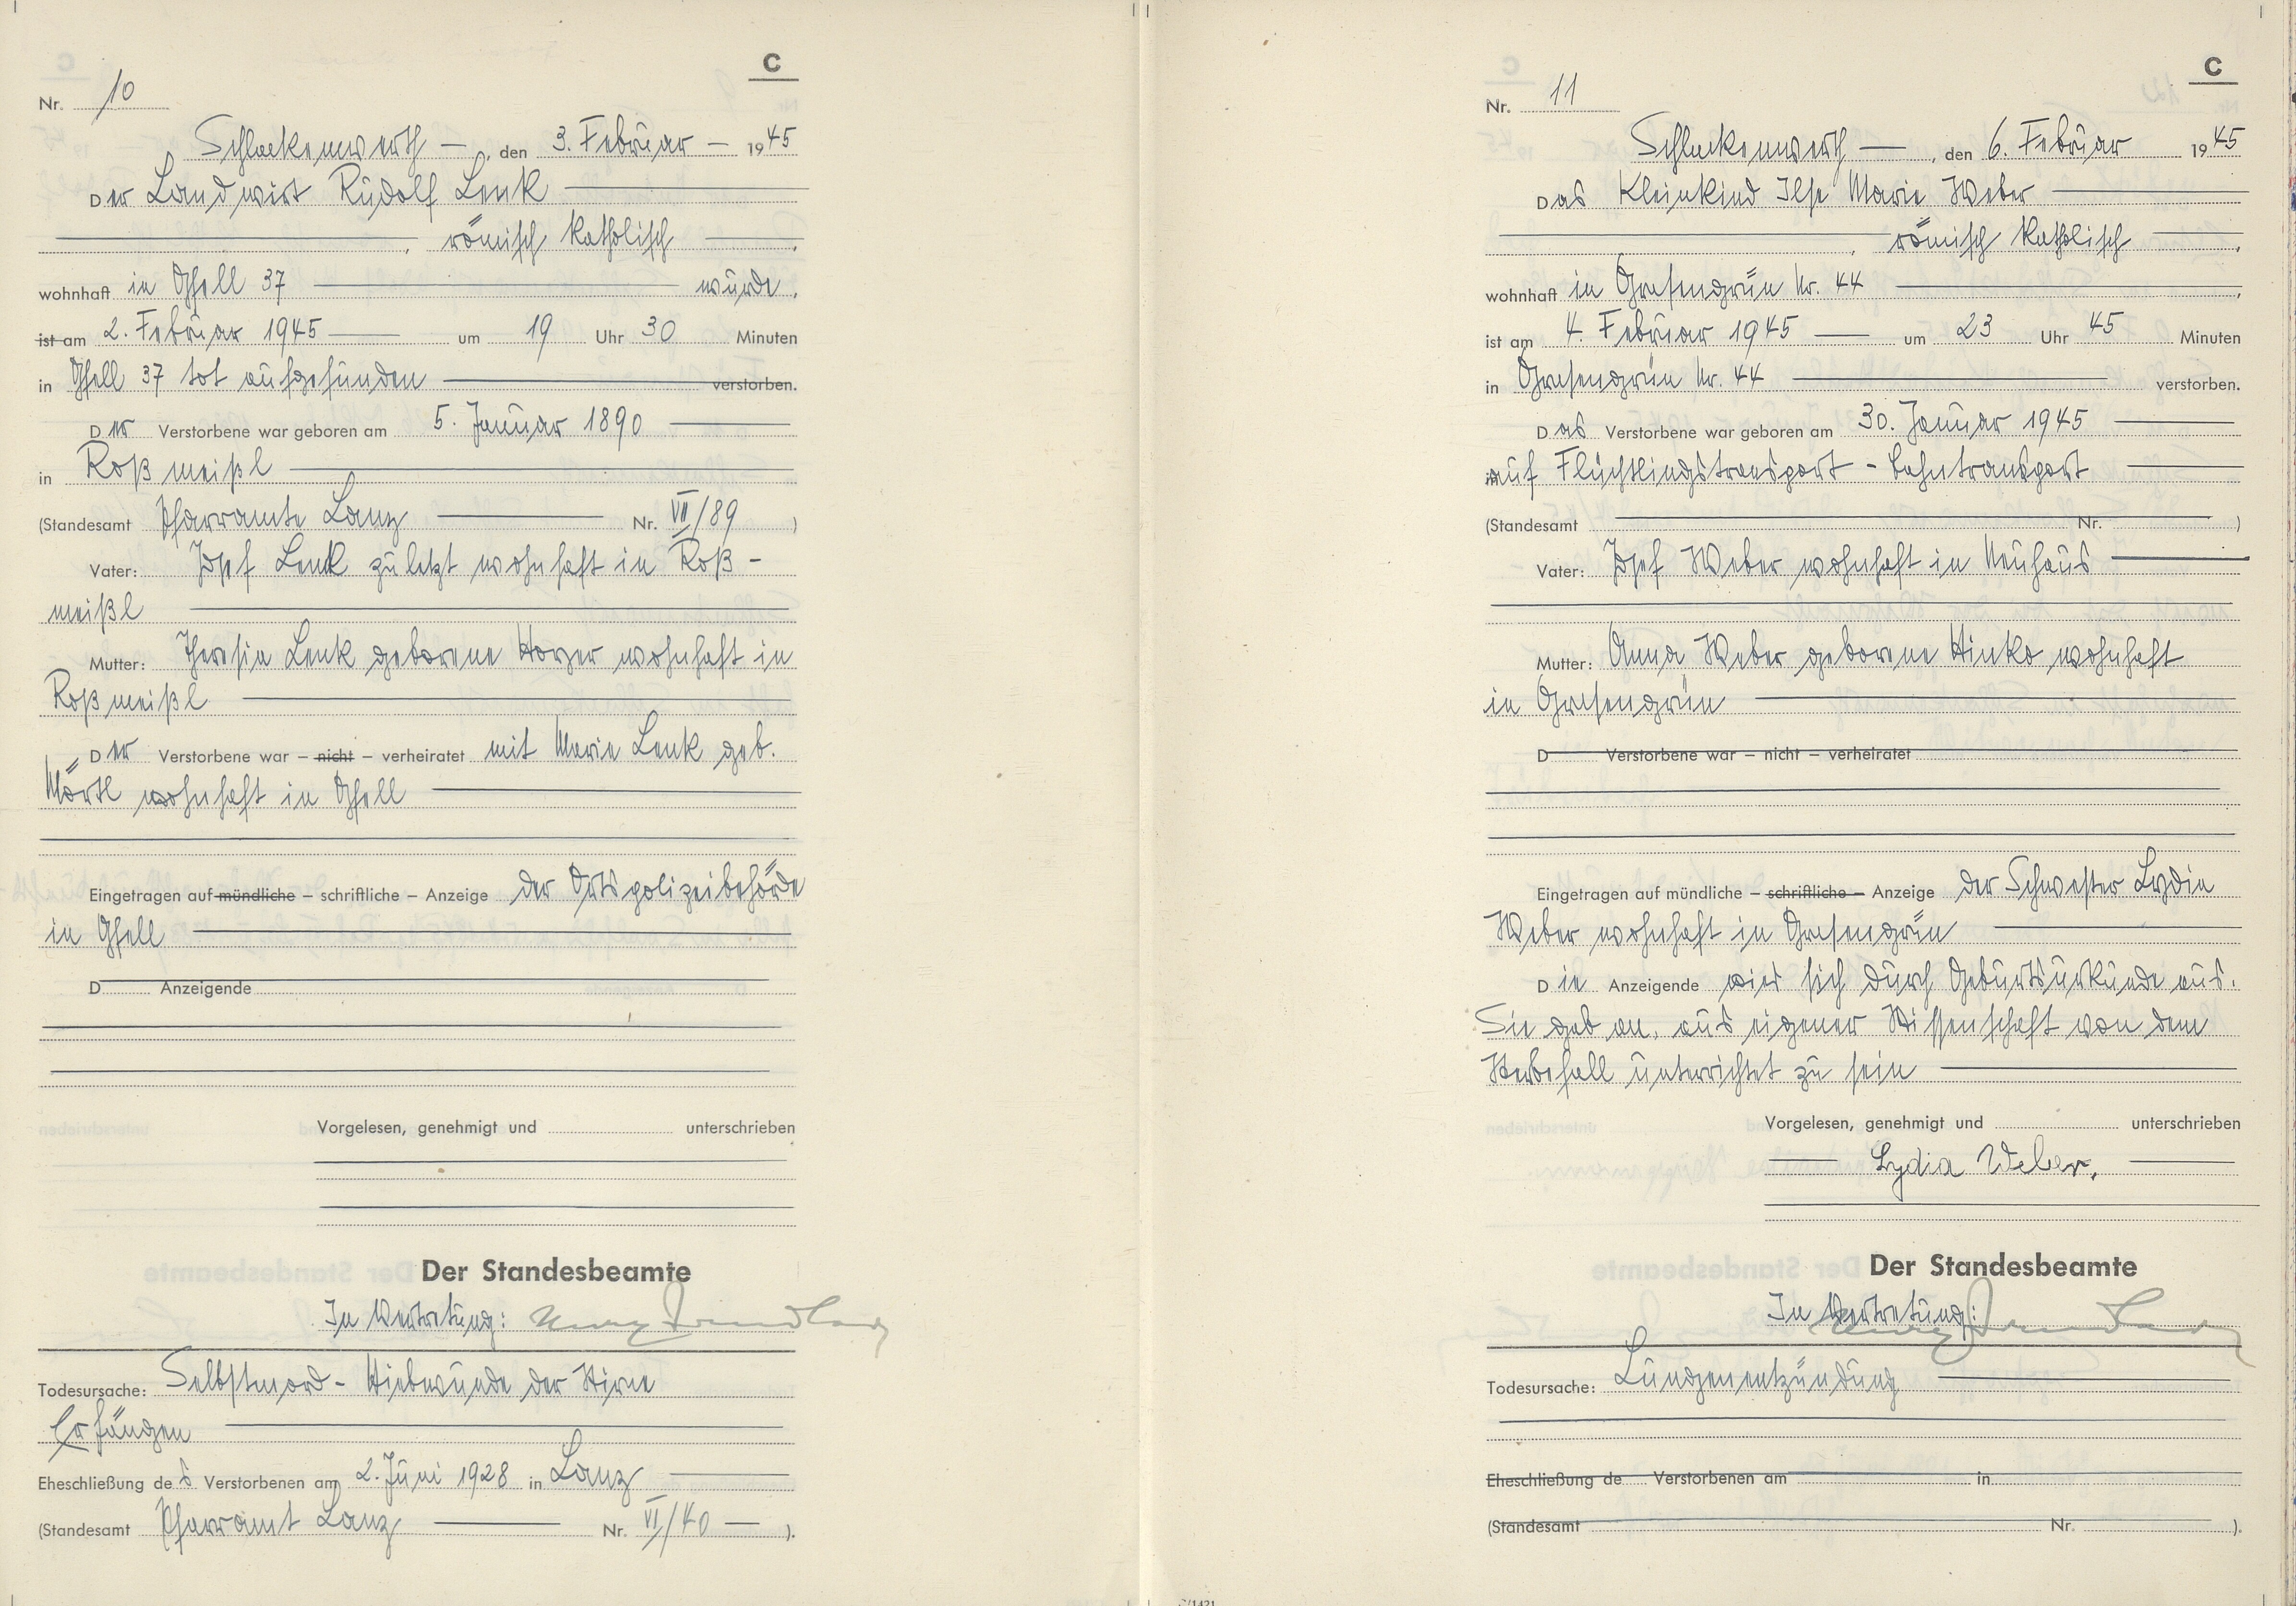 C
Nr. 10
Schlackenwerth — , den 3. Februar — 1945
Der Landwirt Rudolf Lenk
, römisch katholisch ,
wohnhaft in Gfell 37 wurde,
ist am 2. Februar 1945 um 19 Uhr 30 Minuten
in Gfell 37 tot aufgefunden verstorben.
Der Verstorbene war geboren am 5. Januar 1890
in Roßmeißl
(Standesamt Pfarramte Lanz Nr. VII/89 )
Vater: Josef Lenk zuletzt wohnhaft in Roß-
meißl
Mutter: Theresia Lenk geborene wohnhaft in
Roßmeißl
Der Verstorbene war – nicht – verheiratet mit Marie Lenk geb.
Mörtl wohnhaft in Gfell
Eingetragen auf mündliche – schriftliche – Anzeige der Ortspolizeibehörde
in Gfell
D Anzeigende
Vorgelesen, genehmigt und unterschrieben
Der Standesbeamte
In Vertretung:
Todesursache: Selbstmord - Hiebwunde der Stirne
Erhängen
Eheschließung des Verstorbenen am 2. Juni 1928 in Lanz
(Standesamt Pfarramt Lanz Nr. VI/40 — ).
C
Nr. 11
Schlackenwerth — , den 6. Februar 1945
Das Kleinkind Ilse Marie Weber
, römisch katholisch ,
wohnhaft in Grasengrün Nr. 44 ,
ist am 4. Februar 1945 — um 23 Uhr 45 Minuten
in Grasengrün Nr. 44 verstorben.
Das Verstorbene war geboren am 30. Januar 1945
auf Flüchtlingstransport - Bahntransport
(Standesamt Nr. )
Vater: Josef Weber wohnhaft in Neuhaus
Mutter: Anna Weber geborene Hinko wohnhaft
in Grasengrün
D Verstorbene war – nicht – verheiratet
Eingetragen auf mündliche – schriftliche – Anzeige der Schwester Lydia
Weber wohnhaft in Grasengrün
Die Anzeigende wies sich durch Geburtsurkunde aus.
Sie gab an, aus eigener Wissenschaft von dem
Sterbefall unterrichtet zu sein
Vorgelesen, genehmigt und unterschrieben
Lydia Weber.
Der Standesbeamte
In Vertretung:
Todesursache: Lungenentzündung
Eheschließung de Verstorbenen am in
(Standesamt Nr. ).